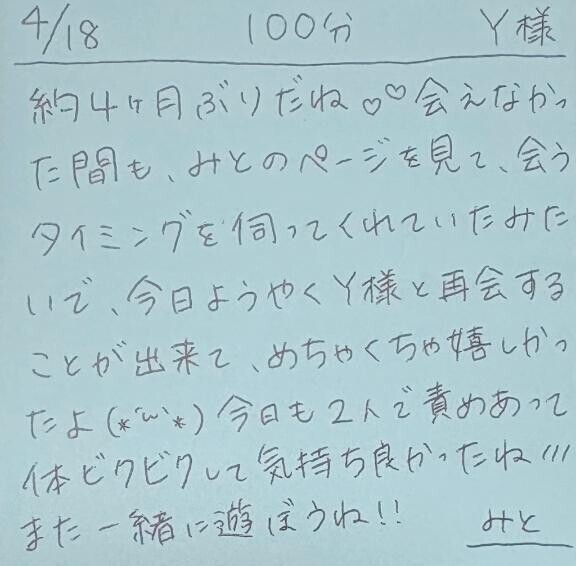 4/18 100分 Y様
約4ヶ月ぶりだね♡♡会えなかっ
た間も、みとのページを見て、会う
タイミングを伺ってくれていたみた
いで、今日ようやくY様と再会する
ことが出来て、めちゃくちゃ嬉しかっ
たよ(*´ω`*)今日も2人で責めあって
体ビクビクして気持ち良かったね!!!
また一緒に遊ぼうね!!
みと